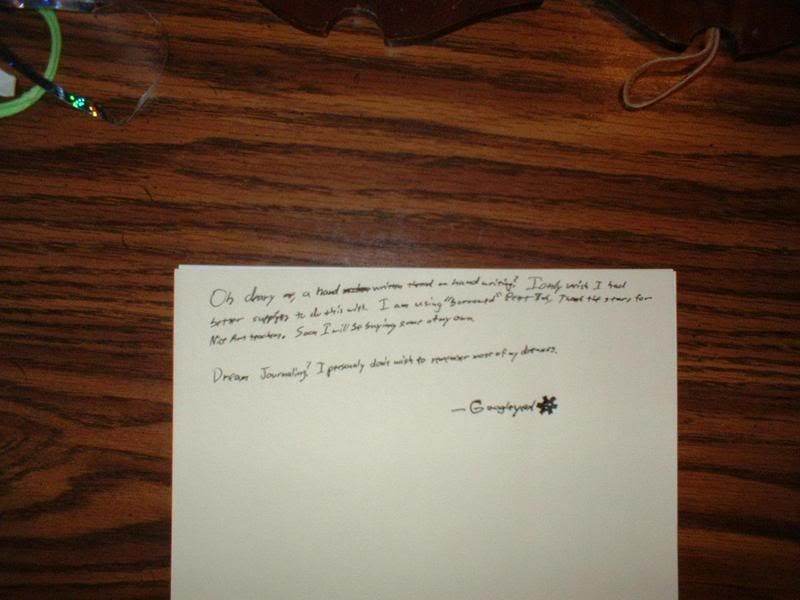 Oh deary me, a hand written thread on hand writing? I only wish I had
better supplies to do this with. I am using "borrowed" Thank the stars for
Nice Art teachers. Soon I will be buying some of my own.
Dream Journaling? I personally don't wish to remember most of my dreams.
— Googleyed